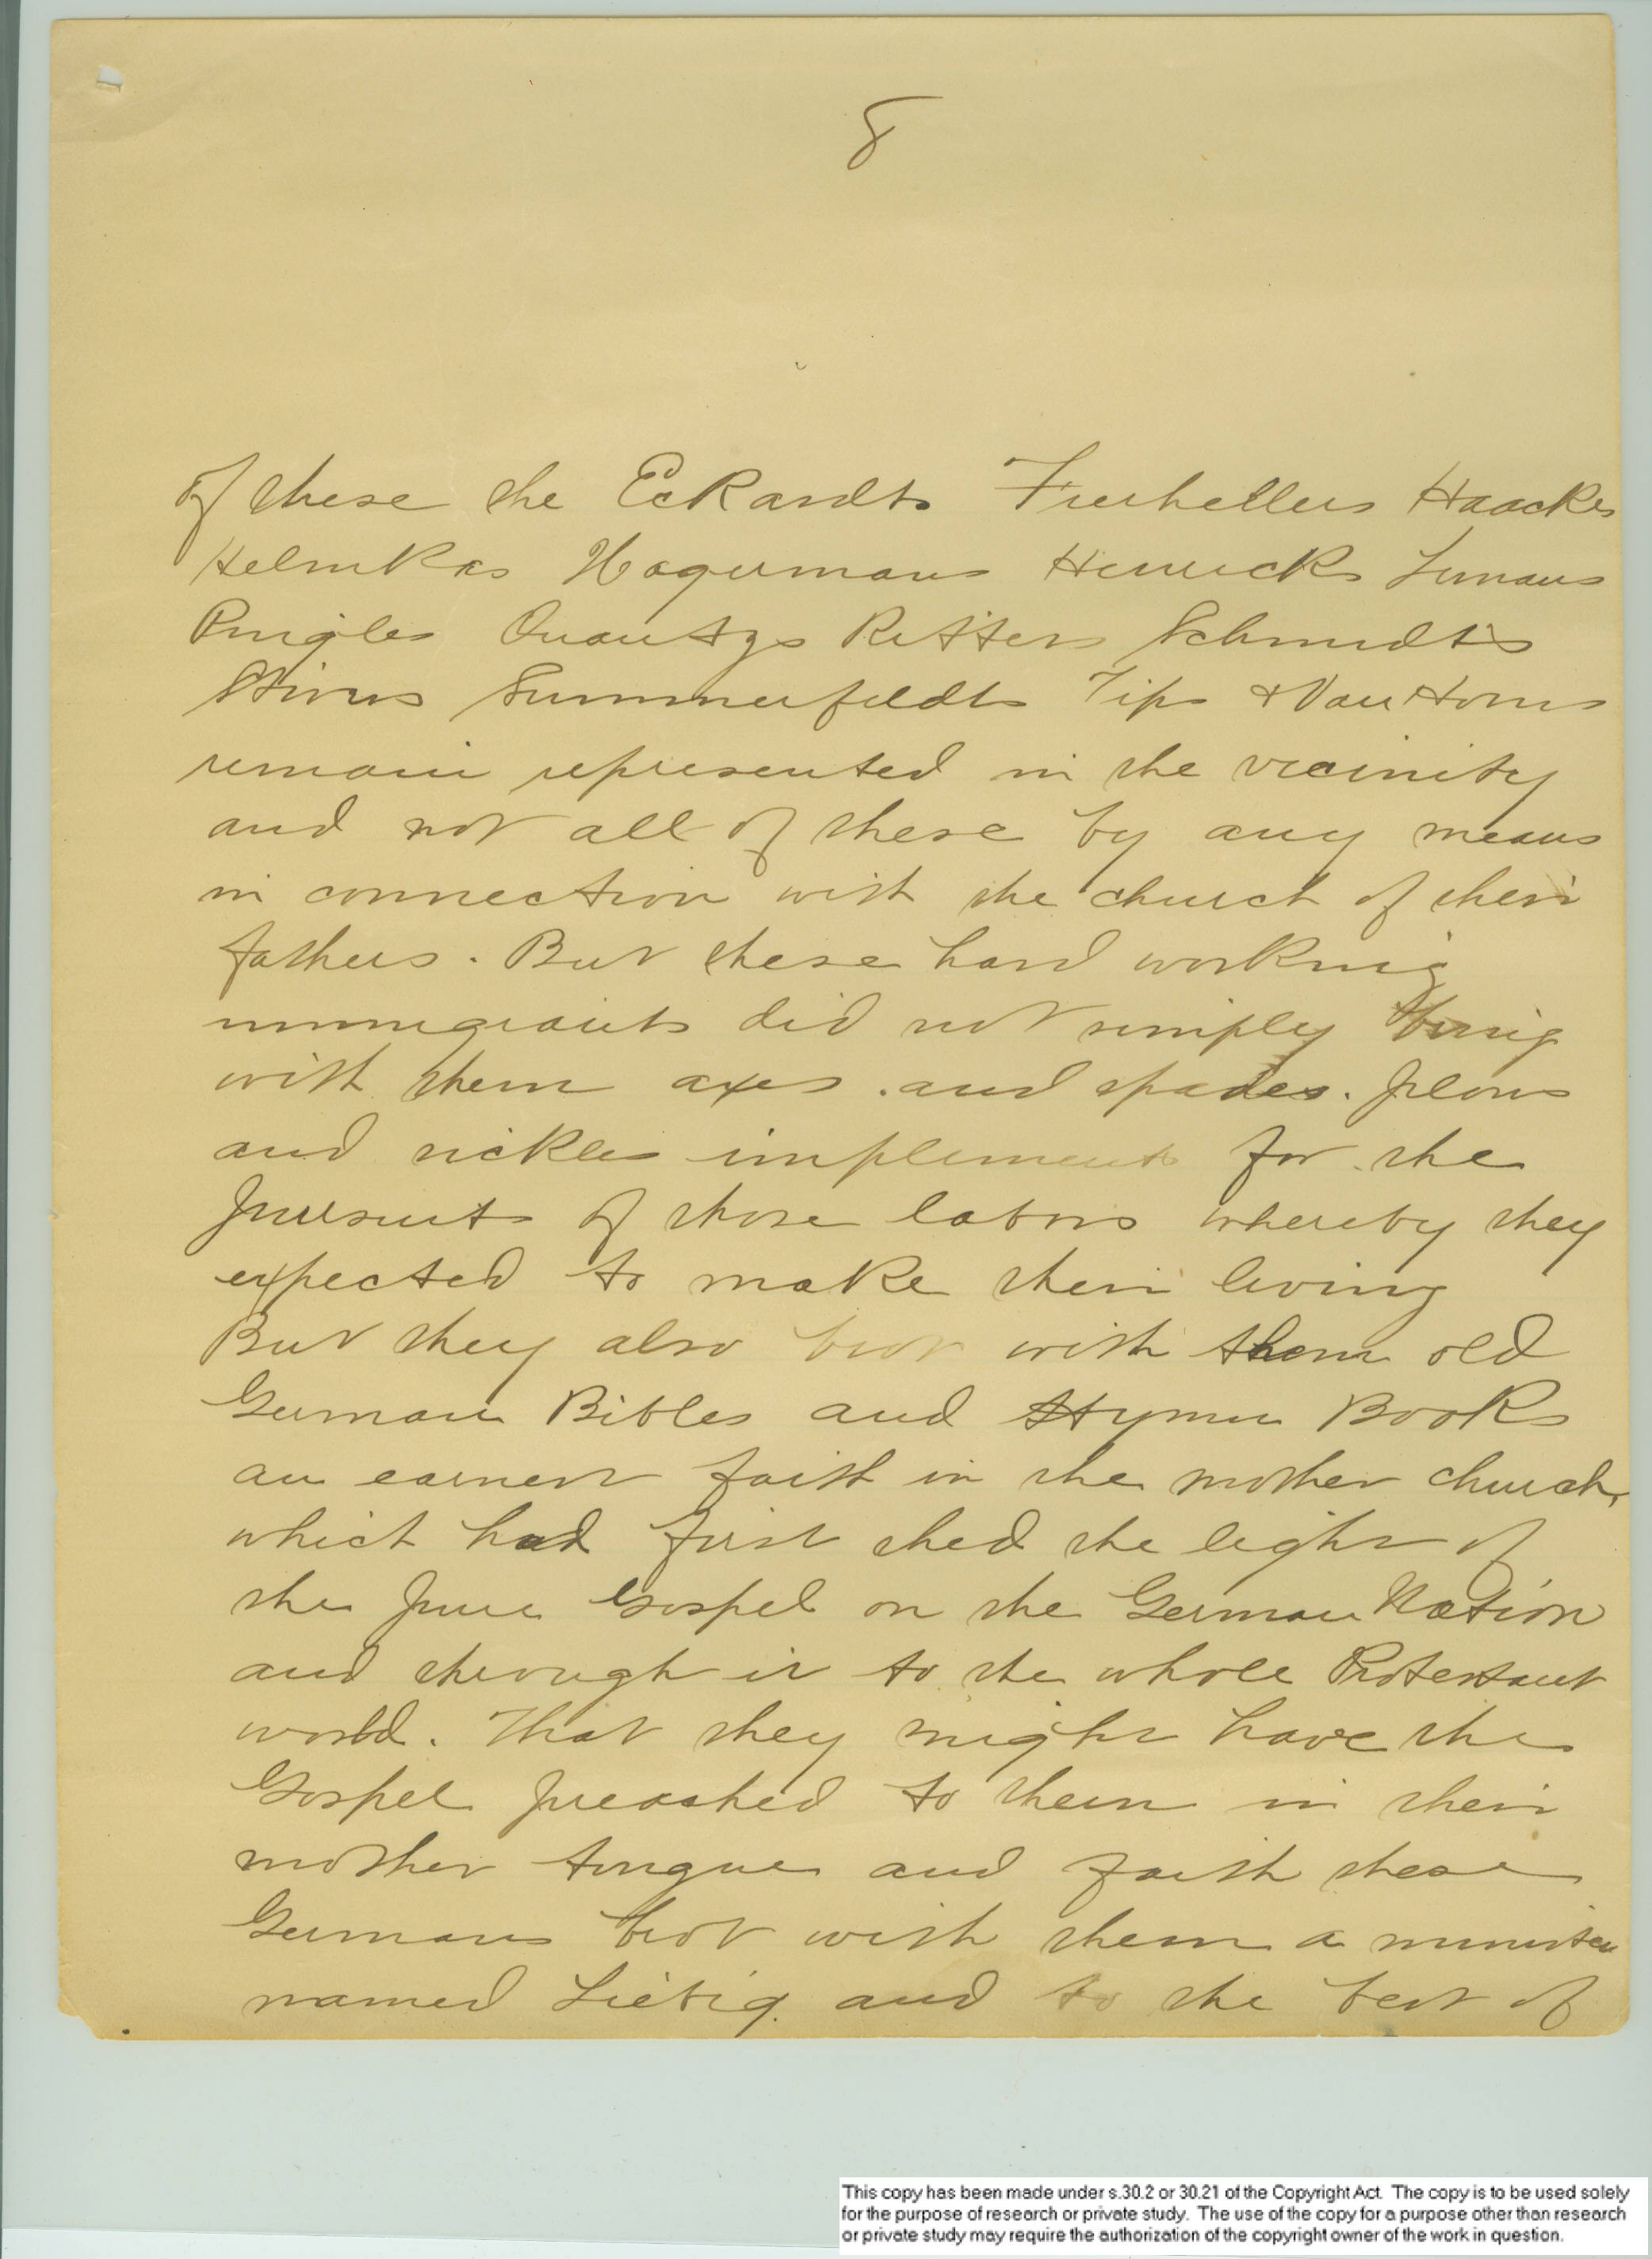 8
of these the Eckardts Fierhellers Haackes
Helmkas Hagermans Henricks Lunaus
Pingles Quantzs Ritters Schmidts
Stivers Summerfeldts Tips & Van Horns
remain represented in the vicinity
and not all of these by any means
in connection with the church of their
fathers. But these hard working
immigrants did not simply bring
with them axes . and spades . plows
and sickles implements for the
pursuits of those labors whereby they
expected to make their living
But they also brot with them old
German Bibles and Hymn Books
an earnest faith in the mother church,
which had first shed the light of
the pure Gospel on the German Nation
and through it to the whole Protestant
world. That they might have the
Gospel preached to them in their
mother tongue and faith these
Germans brot with them a minister
named Liebig. and to the best of
This copy has been made under s.30.2 or 30.21 of the Copyright Act. The copy is to be used solely
for the purpose of research or private study. The use of the copy for a purpose other than research
or private study may require the authorization of the copyright owner of the work in question.